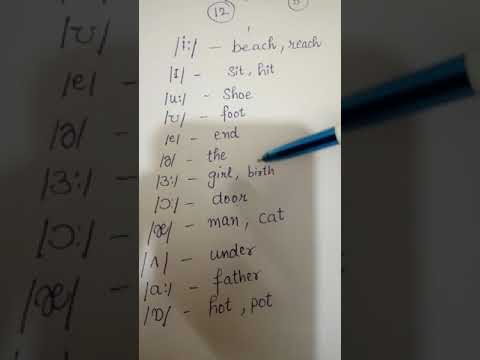 12
/i:/ - beach, reach
/I/ - sit, hit
/u:/ - Shoe
/ʊ/ - foot
/e/ - end
/ə/ - the
/ɜ:/ - girl, birth
/ɔ:/ - door
/æ/ - man, cat
/ʌ/ - under
/a:/ - father
/ɒ/ - hot, pot